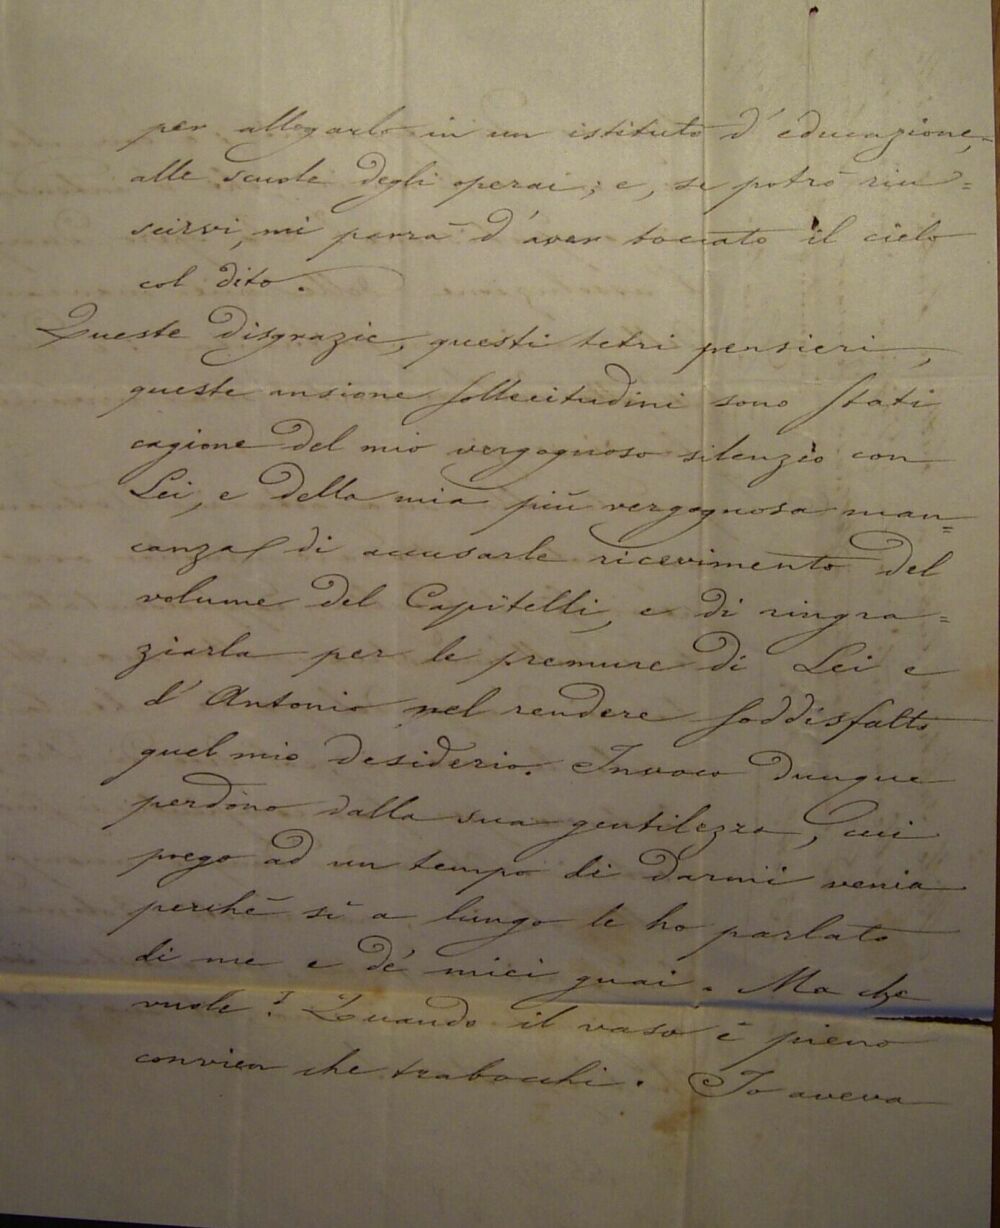 per allogarlo in un istituto d'educazione,
alle scuole degli operai; e, se potrò riu=
scirvi, mi parrà d'aver toccato il cielo
col dito.
Queste disgrazie, questi tetri pensieri,
queste ansione sollecitudini sono stati
cagione del mio vergognoso silenzio con
Lei, e della mia più vergognosa man=
canza di accusarle ricevimento del
volume del Capitelli, e di ringra=
ziarla per le premure di Lei e
d'Antonio nel rendere soddisfatto
quel mio desiderio. Invoco dunque
perdono dalla sua gentilezza, cui
prego ad un tempo di darmi venia
perchè sì a lungo le ho parlato
di me e de' miei guai. Ma che
vuole? Quando il vaso è pieno
convien che trabocchi. Io aveva